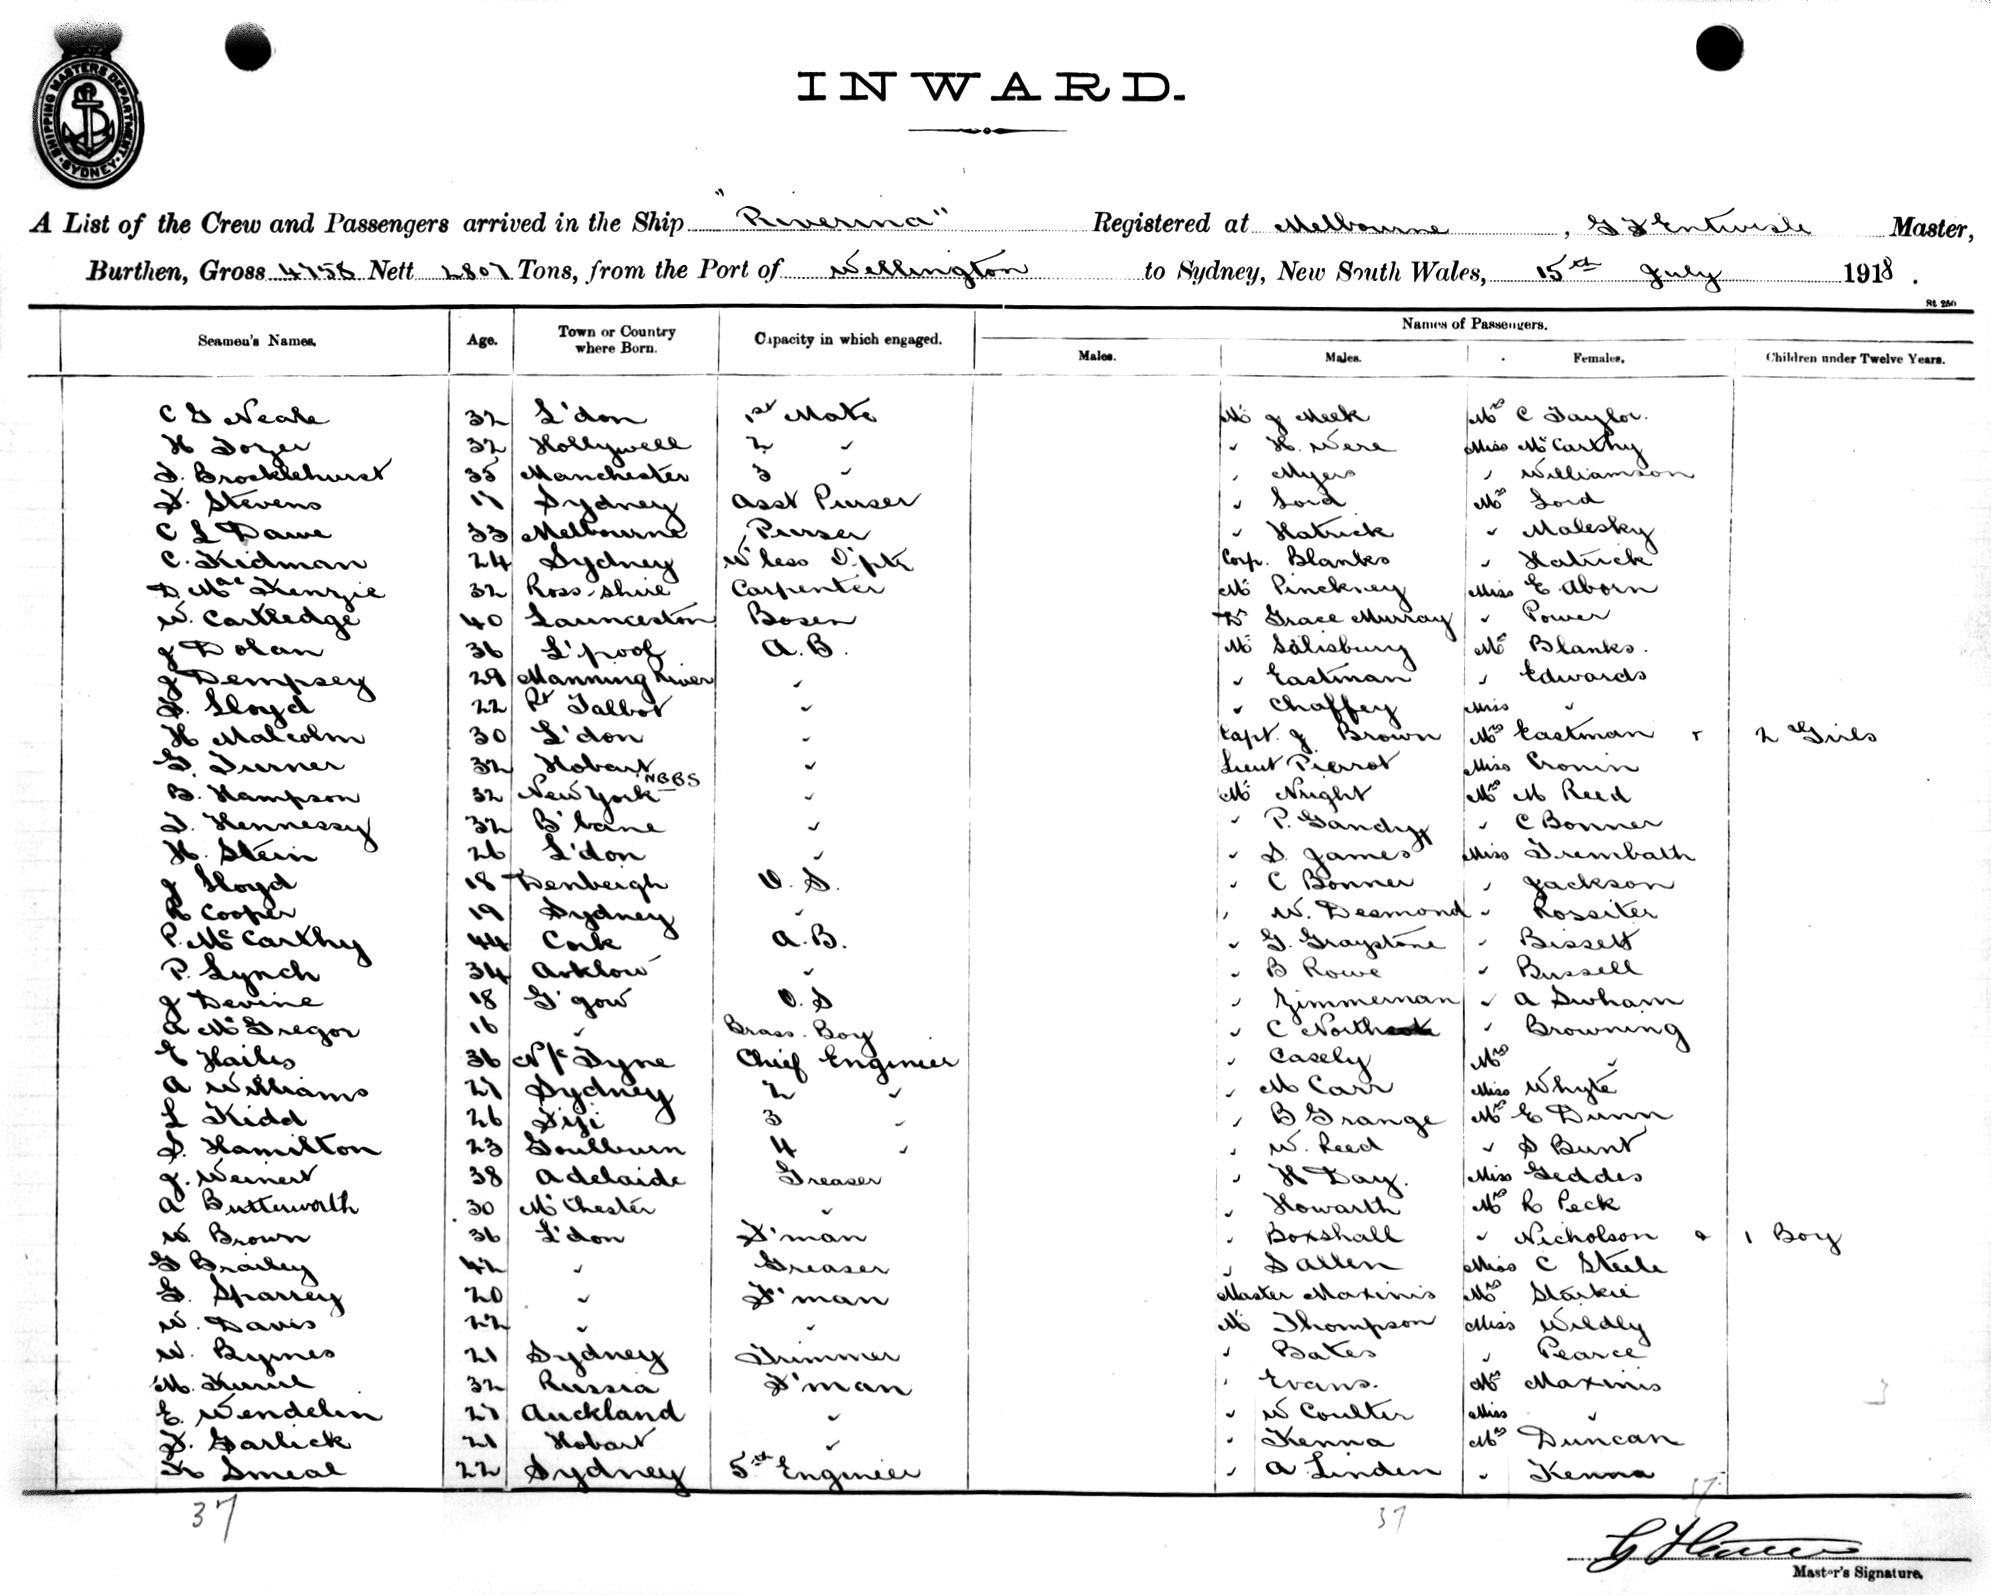 SHIPPING MASTERS DEPARTMENT · SYDNEY ·
INWARD.
A List of the Crew and Passengers arrived in the Ship "Riverina" Registered at Melbourne, G F Entwisle Master,
Burthen, Gross 4758 Nett 2807 Tons, from the Port of Wellington to Sydney, New South Wales, 15th July 1918.
St 250
Seamen's Names. Age. Town or Country where Born. Capacity in which engaged. Names of Passengers.
Males. Males. Females. Children under Twelve Years.
C G Neale 32 L'don 1st Mate Mr J Meek Mrs C Taylor.
H Tozer 32 Hollywell 2 " " H. Were Miss McCarthy
T. Brocklehurst 35 Manchester 3 " " Myers " Williamson
F. Stevens 17 Sydney Asst Purser " Lord Mrs Lord
C L Dawe 33 Melbourne Purser " Hatrick " Malesky
C. Kidman 24 Sydney W'less O'ptr Corp. Blanks " Hatrick
D MacKenzie 32 Ross-shire Carpenter Mr Pinckney Miss E Aborn
W. Cartledge 40 Launceston Bosen Dr Grace Murray " Power
J Dolan 36 L'pool A.B. Mr Salisbury Mrs Blanks.
J Dempsey 29 Manning River " " Eastman " Edwards
F. Lloyd 22 Pt Talbot " " Chaffey Miss "
H Malcolm 30 L'don " Capt. J Brown Mrs Eastman & 2 Girls
G. Turner 32 Hobart " Lieut Pierrot Miss Cronin
B. Hampson 32 New York NBBS " Mr Nright Mrs M Reed
T. Hennessy 32 B'bane " " P. Gandy " C Bonner
H. Stein 26 L'don " " S. James Miss Trembath
J Lloyd 18 Denbeigh O. S. " C Bonner " Jackson
R Cooper 19 Sydney " " W. Desmond " Rossiter
P. McCarthy 44 Cork A.B. " G. Graystone " Bissett
P. Lynch 34 Arklow " " B Rowe " Bussell
J Devine 18 G'gow O. S " Zimmerman " A Swham
A McGregor 16 " Brass Boy " C North " Browning
E Hailes 36 N/c Tyne Chief Engineer " Casely Mrs "
A Williams 27 Sydney 2 " " M Carr Miss Whyte
L Kidd 26 Fiji 3 " " B Grange Mrs E Dunn
S. Hamilton 23 Goulburn 4 " " W. Reed " S Bunt
J. Weinert 38 Adelaide Greaser " H Day. Miss Geddes
A Butterworth 30 M'Chester " " Howarth Mrs R Peck
W Brown 36 L'don F'man " Boxshall " Nicholson & 1 Boy
G Brailey 42 " Greaser " Sallen Miss C Steele
G. Sparrey 20 " F'man Master Maxinis Mrs Starkie
W. Davis 22 " " Mr Thompson Miss Wildly
W. Byrnes 21 Sydney Trimmer " Bates " Pearce
M. 32 Russia F'man " Evans. Mrs Maxinis
E. Wendelin 27 Auckland " " W Coulter Miss "
F. Garlick 21 Hobart " " Kenna Mrs Duncan
K Smeal 22 Sydney 5th Engineer " A Linden " Kenna
37 37 37
Master's Signature.